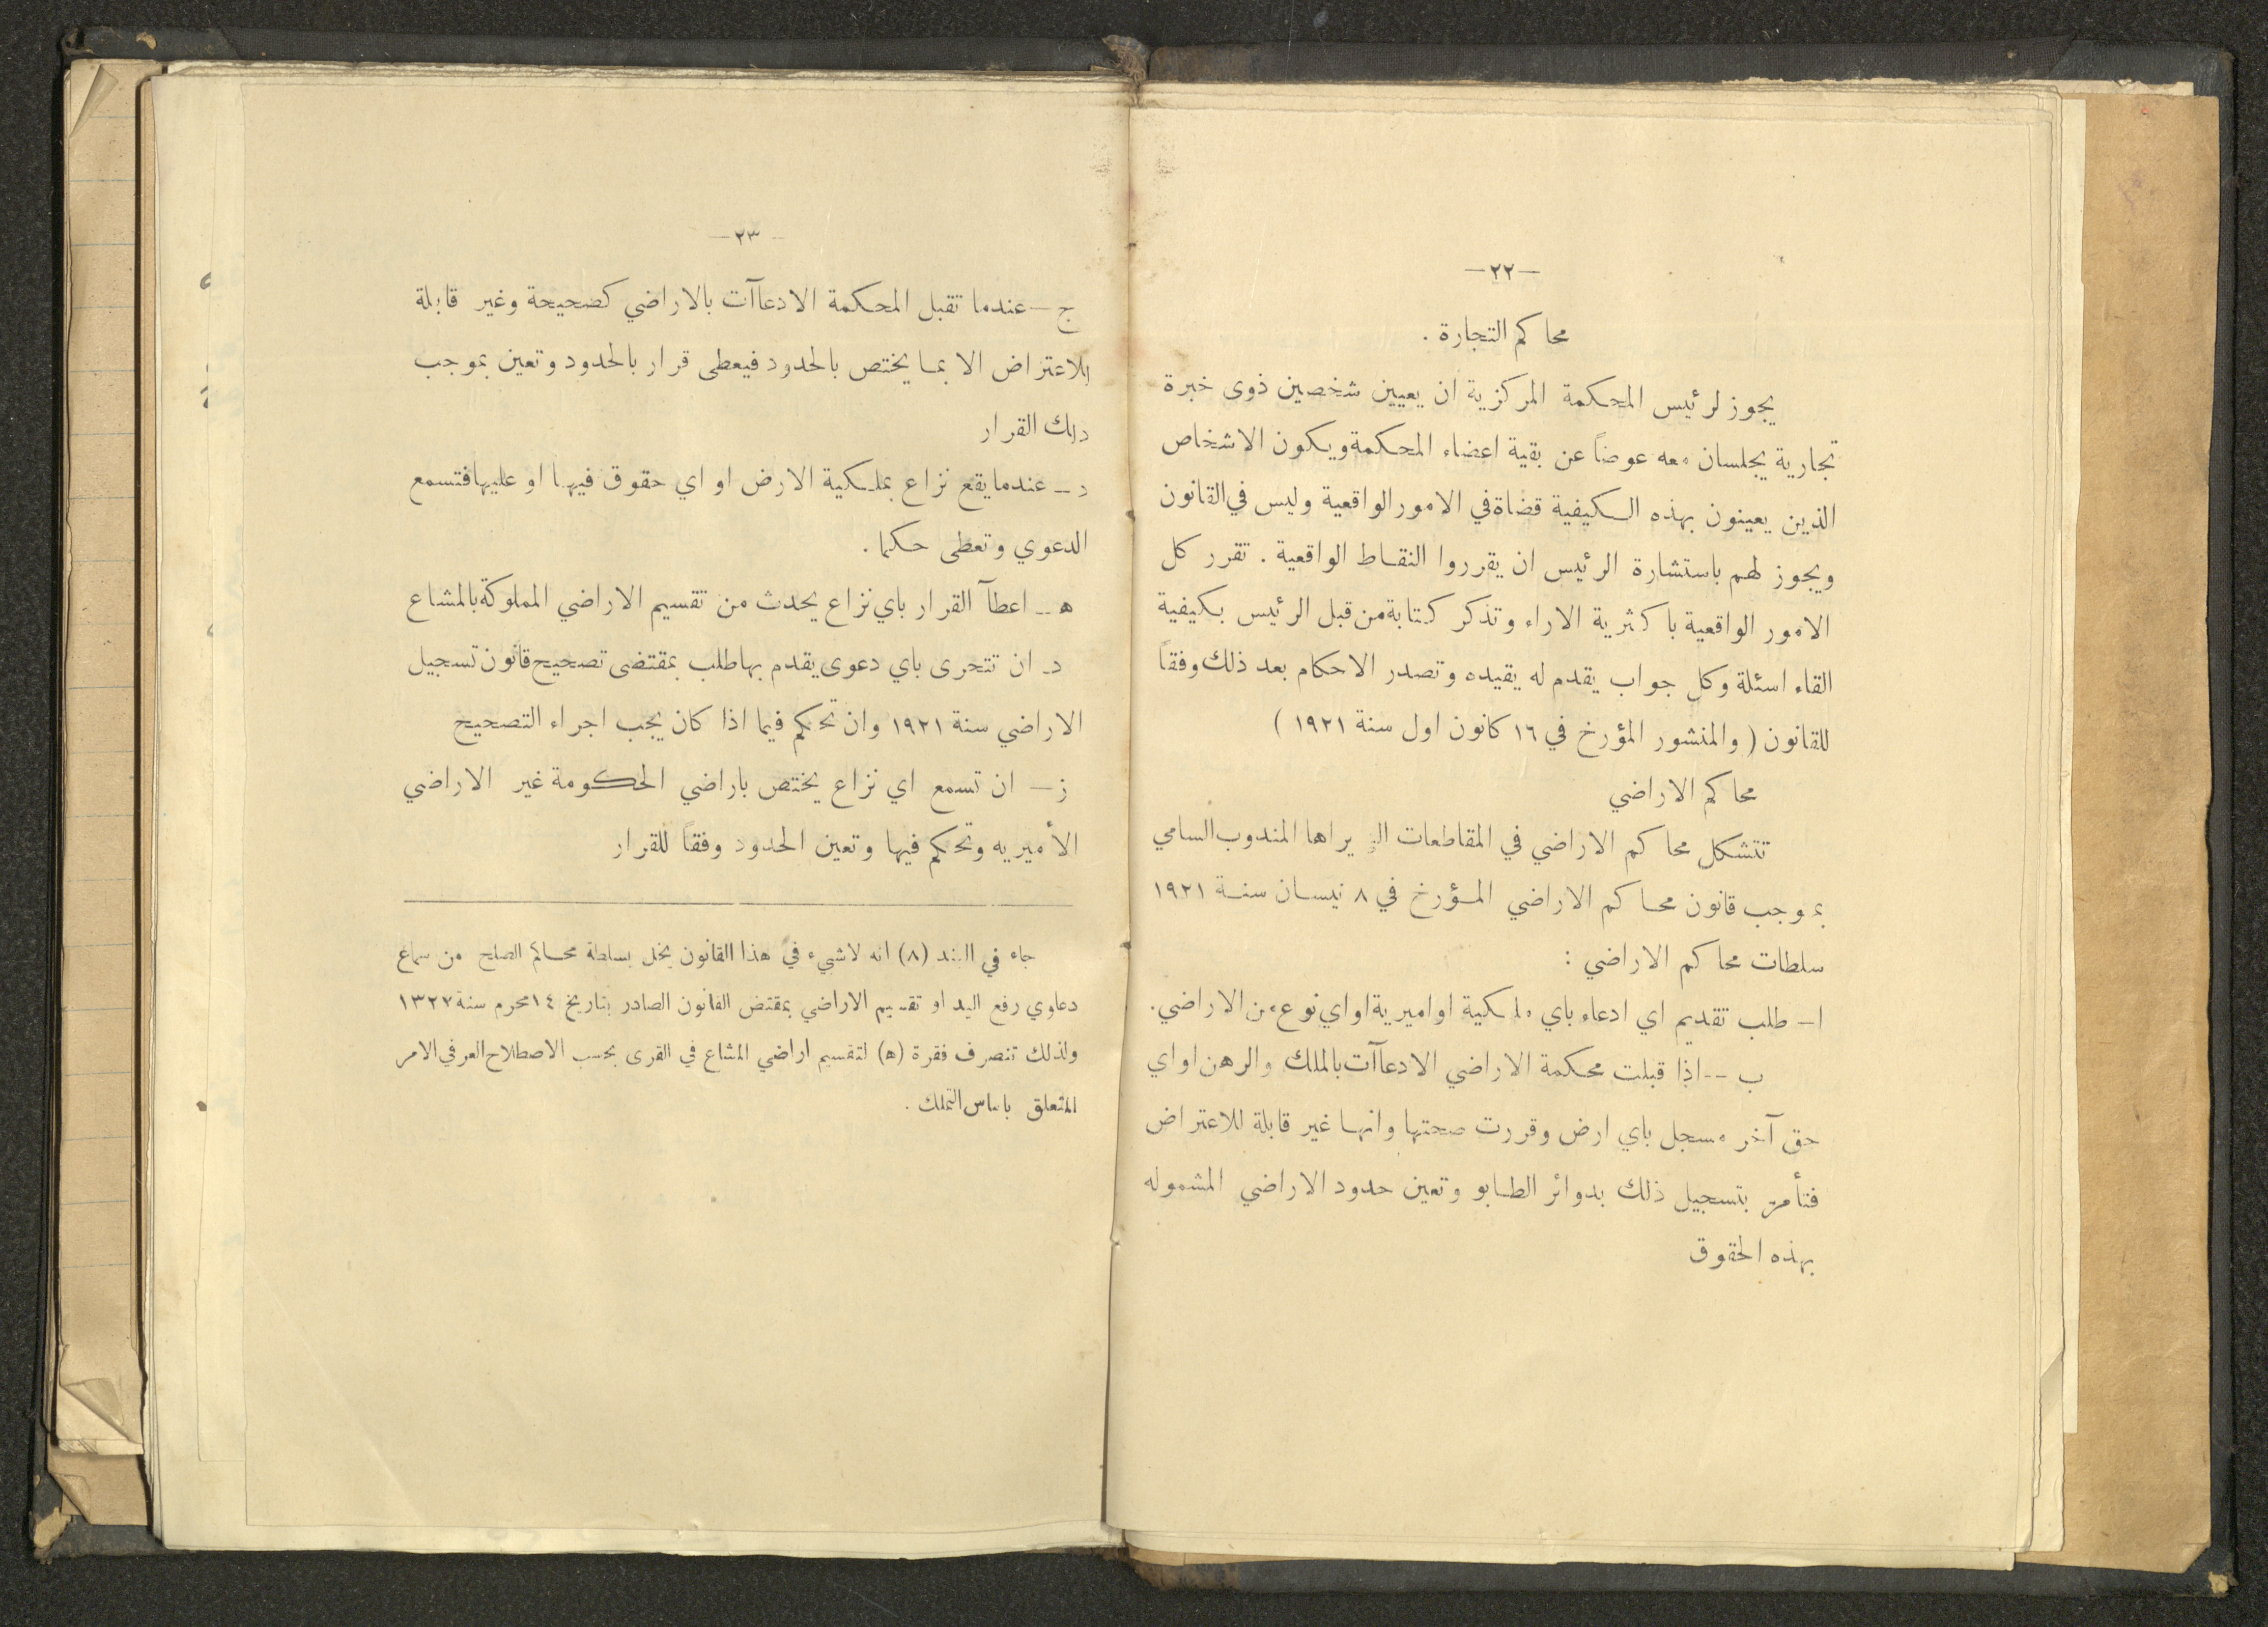 —٢٢—
محاكم التجارة .
يجوز لرئيس المحكمة المركزية ان يعيين شخصين ذوى خبرة
تجارية يجلسان معه عوضاً عن بقية اعضاء المحكمة ويكون الاشخاص
الذين يعينون بهذه الكيفية قضاة في الامور الواقعية وليس في القانون
ويجوز لهم باستشارة الرئيس ان يقرروا النقاط الواقعية . تقرر كل
الامور الواقعية باكثرية الاراء وتذكر كتابة من قبل الرئيس بكيفية
القاء اسئلة وكل جواب يقدم له يقيده وتصدر الاحكام بعد ذلك وفقاً
للقانون ( والمنشور المؤرخ في ١٦ كانون اول سنة ١٩٢١ )
محاكم الاراضي
تتشكل محاكم الاراضي في المقاطعات التي يراها المندوب السامي
بموجب قانون محاكم الاراضي المؤرخ في ٨ نيسان سنة ١٩٢١
سلطات محاكم الاراضي :
ا— طلب تقديم اي ادعاء باي ملكية او اميرية او اي نوع من الاراضي.
ب -- اذا قبلت محكمة الاراضي الادعاآت بالملك والرهن او اي
حق آخر مسجل باي ارض وقررت صحتها وانها غير قابلة للاعتراض
فتأمر بتسجيل ذلك بدوائر الطابو وتعين حدود الاراضي المشموله
بهذه الحقوق
—٢٣—
ج — عندما تقبل المحكمة الادعاآت بالاراضي كصحيحة وغير قابلة
للاعتراض الا بما يختص بالحدود فيعطى قرار بالحدود وتعين بموجب
ذلك القرار
د — عندما يقع نزاع بملكية الارض او اي حقوق فيها او عليها فتسمع
الدعوي وتعطى حكما .
ه -- اعطآ القرار باي نزاع يحدث من تقسيم الاراضي المملوكة بالمشاع
د- ان تتحرى باي دعوى يقدم بها طلب بمقتضى تصحيح قانون تسجيل
الاراضي سنة ١٩٢١ وان تحكم فيما اذا كان يجب اجراء التصحيح
ز — ان تسمع اي نزاع يختص باراضي الحكومة غير الاراضي
الأميريه وتحكم فيها وتعين الحدود وفقاً للقرار
جاء في البند (٨) انه لا شيء في هذا القانون يخل بسلطة محاكم الصلح من سماع
دعاوي رفع اليد او تقسيم الاراضي بمقتض القانون الصادر بتاريخ ١٤ محرم سنة ١٣٢٧
ولذلك تنصرف فقرة (ه) لتقسيم اراضي المشاع في القرى بحسب الاصطلاح العرفي الامر
المتعلق باساس التملك .